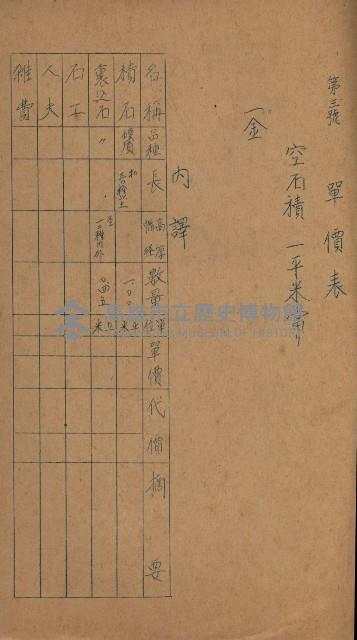 第三號 單價表
空石積 一平米當リ
一金
內譯
名稱 品種 長 高厚幅経 數量 單位 單價 代價 摘要
積石 硬質 扣三〇糎以上 一〇〇 平米
裏込石 〃 一〇糎内外 〇四五 立米
石工
人夫
雜費
高雄市立歷史博物館
KAOHSIUNG MUSEUM OF HISTORY